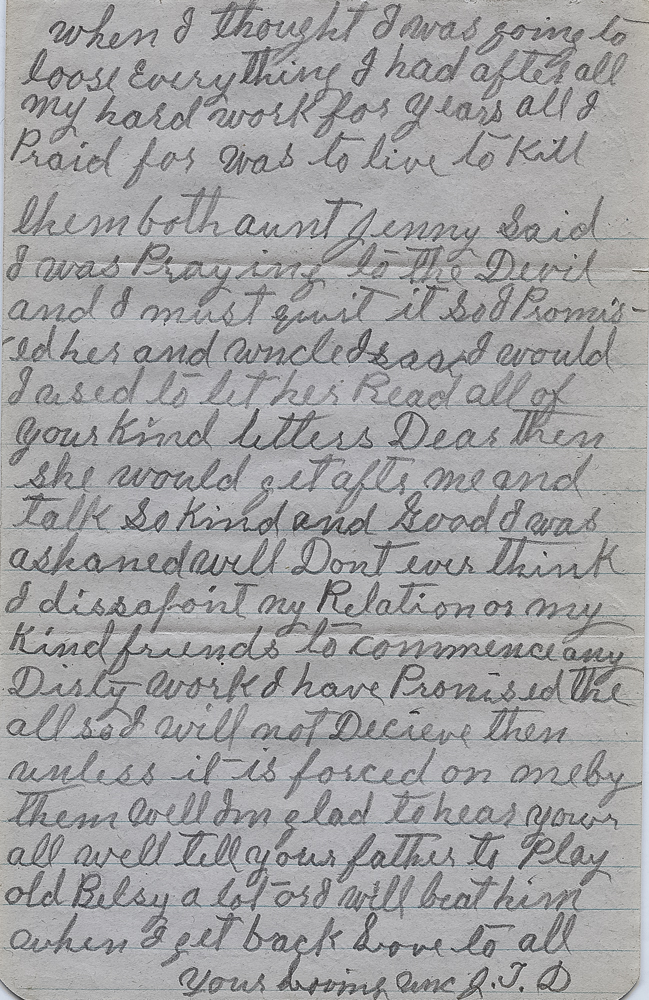 when I thought I was going to
loose Everything I had after all
my hard work for years all I
Praid for was to live to Kill
them both aunt Jenny Said
I was Praying to the Devil
and I must quit it So I Promis-
ed her and uncle Isaac I would
I used to let her Read all of
your Kind letters Dear then
she would get afte me and
talk So Kind and Good I was
ashaned well Dont ever think
I dissapoint ny Relation or my
Kind friends to commence any
Dirty work I have Promised the
all so I will not Decieve then
unless it is forced on me by
them well Im glad to hear your
all well tell your father to Play
old Betsy a lot or I will beat him
when I get back Love to all
Your Loving unc J. T. D